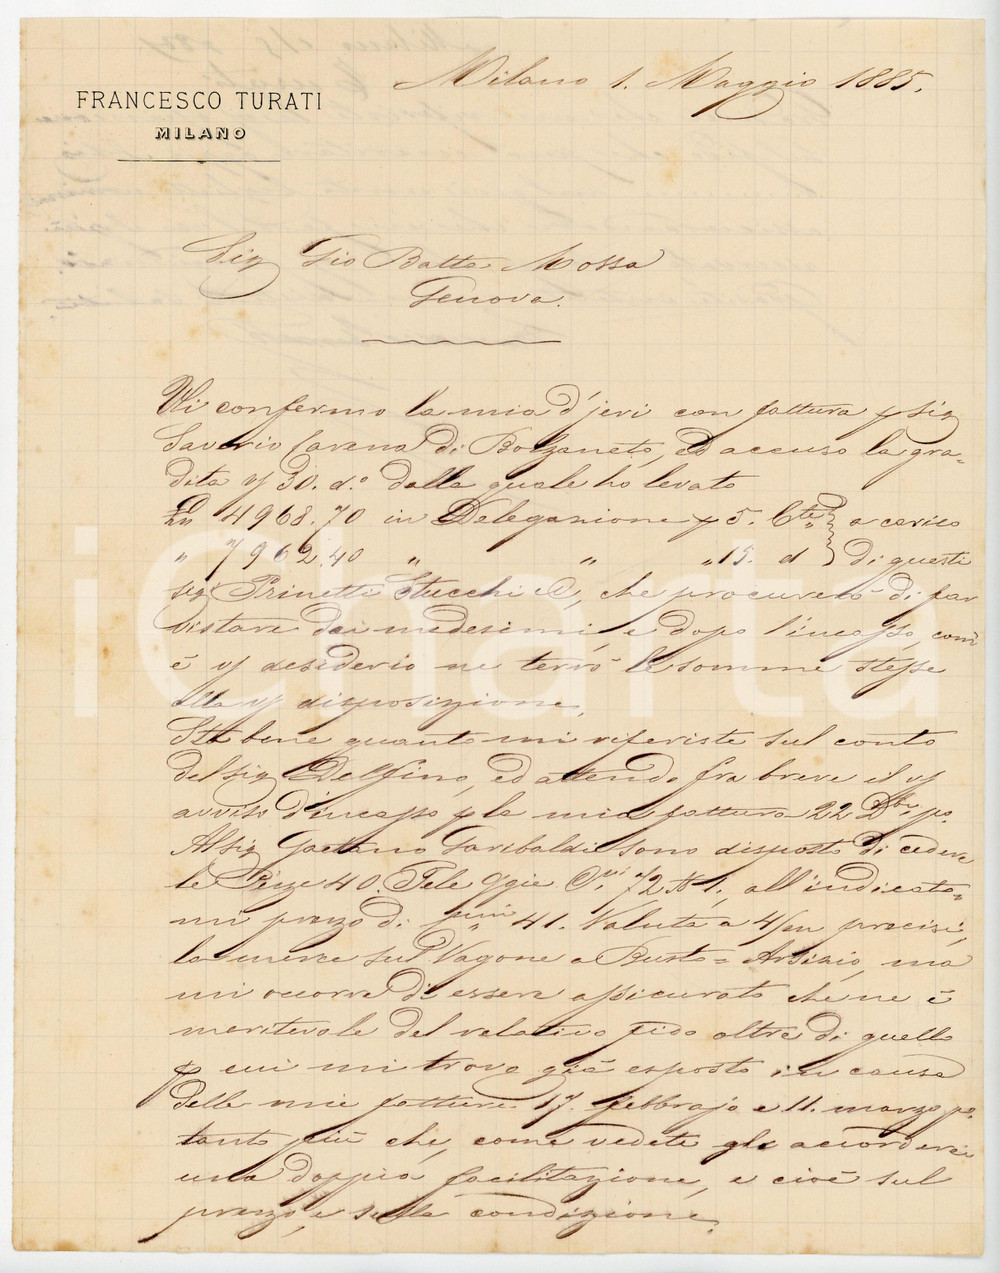 Milano 1. Maggio 1885.
FRANCESCO TURATI
MILANO
Sig Gio Batta Mossa
Genova.
Vi confermo la mia d'jeri con fattura p sig
Saverio Cavana di Bolzaneto, ed accuso la gra-
dita v/ 30. do dalla quale ho levato
Ln 4968.70 in Delegazione p 5. Cte a carico
" 7962.40 " " " 15. d di questi
sig Prinetti Stucchi & C, che procurerò di far
vistare dai medesimi, e dopo l'incasso, com'
è v/ desiderio ne terrò le somme stesse
alla v/ disposizione.
Sta bene quanto mi riferiste sul conto
del sig Delfino, ed attendo fra breve il v/
avviso d'incasso p la mia fattura 22 Dbre po.
Al sig Gaetano Garibaldi sono disposto di cedere
le Pezze 40. Tele Ggie 72 N 1, all'indicato-
mi prezzo di 41. Valuta a 4/m precisi,
la merce sul Vagone a Busto=Arsizio, ma
mi occorre di essere assicurato che ne è
meritevole del relativo fido oltre di quello
p cui mi trovo già esposto in causa
delle mie fatture 17. febbrajo e 11. marzo po.
tanto più che, come vedete gli accorderei
una doppia facilitazione, e cioè sul
prezzo, e sulla condizione.
iCharta